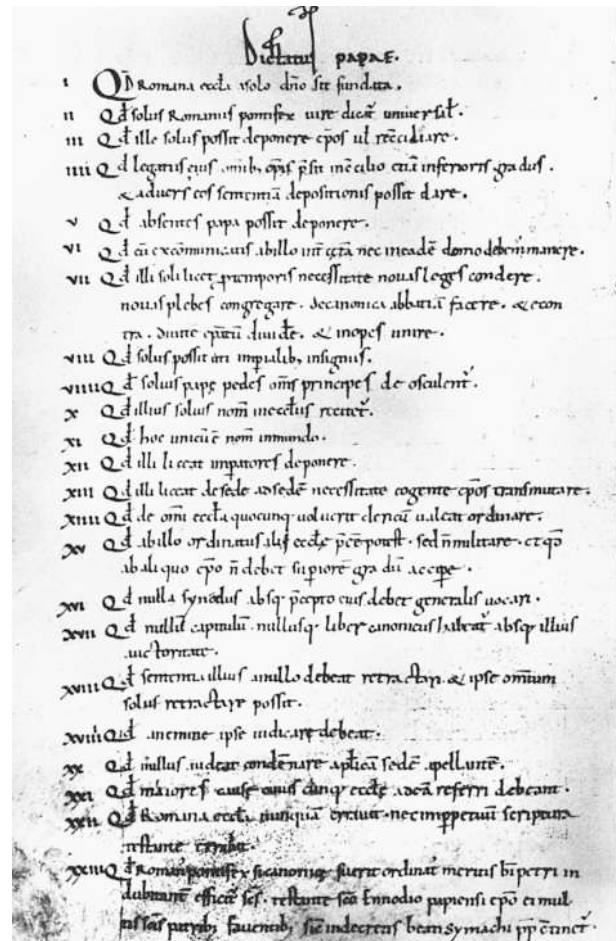 Dictatus papae.
I Qd Romana eccła a solo dño sit fundata.
II Qd solus Romanus pontifex iure dicat universal.
III Qd ille solus possit deponere epos ul recciliare.
IIII Qd legatus eius omib; epis psit in cilio etiā inferioris gradus.
& advers eos sententiā depositionis possit dare.
V Qd absentes papa possit deponere.
VI Qd cū excommunicatis ab illo int cetā nec in eadē domo debem manere.
VII Qd illi soli licet p temporis necessitate novas leges condere.
novas plebes congregare. de canonica abbatiā facere. & econ
tra. divite epatū divide. & inopes unire.
VIII Qd solus possit uti impialib; insigniis.
VIIII Qd solius pape pedes oms principes deosculent.
X Qd illius solius nom in eccliis recitet.
XI Qd hoc unicū ē nom in mundo.
XII Qd illi liceat impatores deponere.
XIII Qd illi liceat de sede ad sedē necessitate cogente epos transmutare.
XIIII Qd de omi eccła quocunq voluerit clericū valeat ordinare.
XV Qd ab illo ordinatus alii eccłę pcēe potest. sed ñ militare. et qd
ab aliquo epo ñ debet supiorē gradū accipe.
XVI Qd nulla synodus absq pcepto eius debet generalis vocari.
XVII Qd nullū capitulū nullusq liber canonicus habeat absq illius
auctoritate.
XVIII Qd sententia illius a nullo debeat retractari. & ipse omnium
solus retractare possit.
XVIIII Qd a nemine ipse iudicare debeat.
XX Qd nullus audeat condēnare aplicā sedē apellantē.
XXI Qd maiores cause cuiuscunq eccłę ad eā referri debeant.
XXII Qd Romana eccła nunquā erravit. nec imppetuū scriptura
testante errabit.
XXIII Qd Roman pontifex si canonice fuerit ordinat meritis bi petri in
dubitant efficit scs. testante sco Ennodio papiensi epo ei mul
tis scis patrib; faventib; sic in decretis beati symachi pp ctinet.